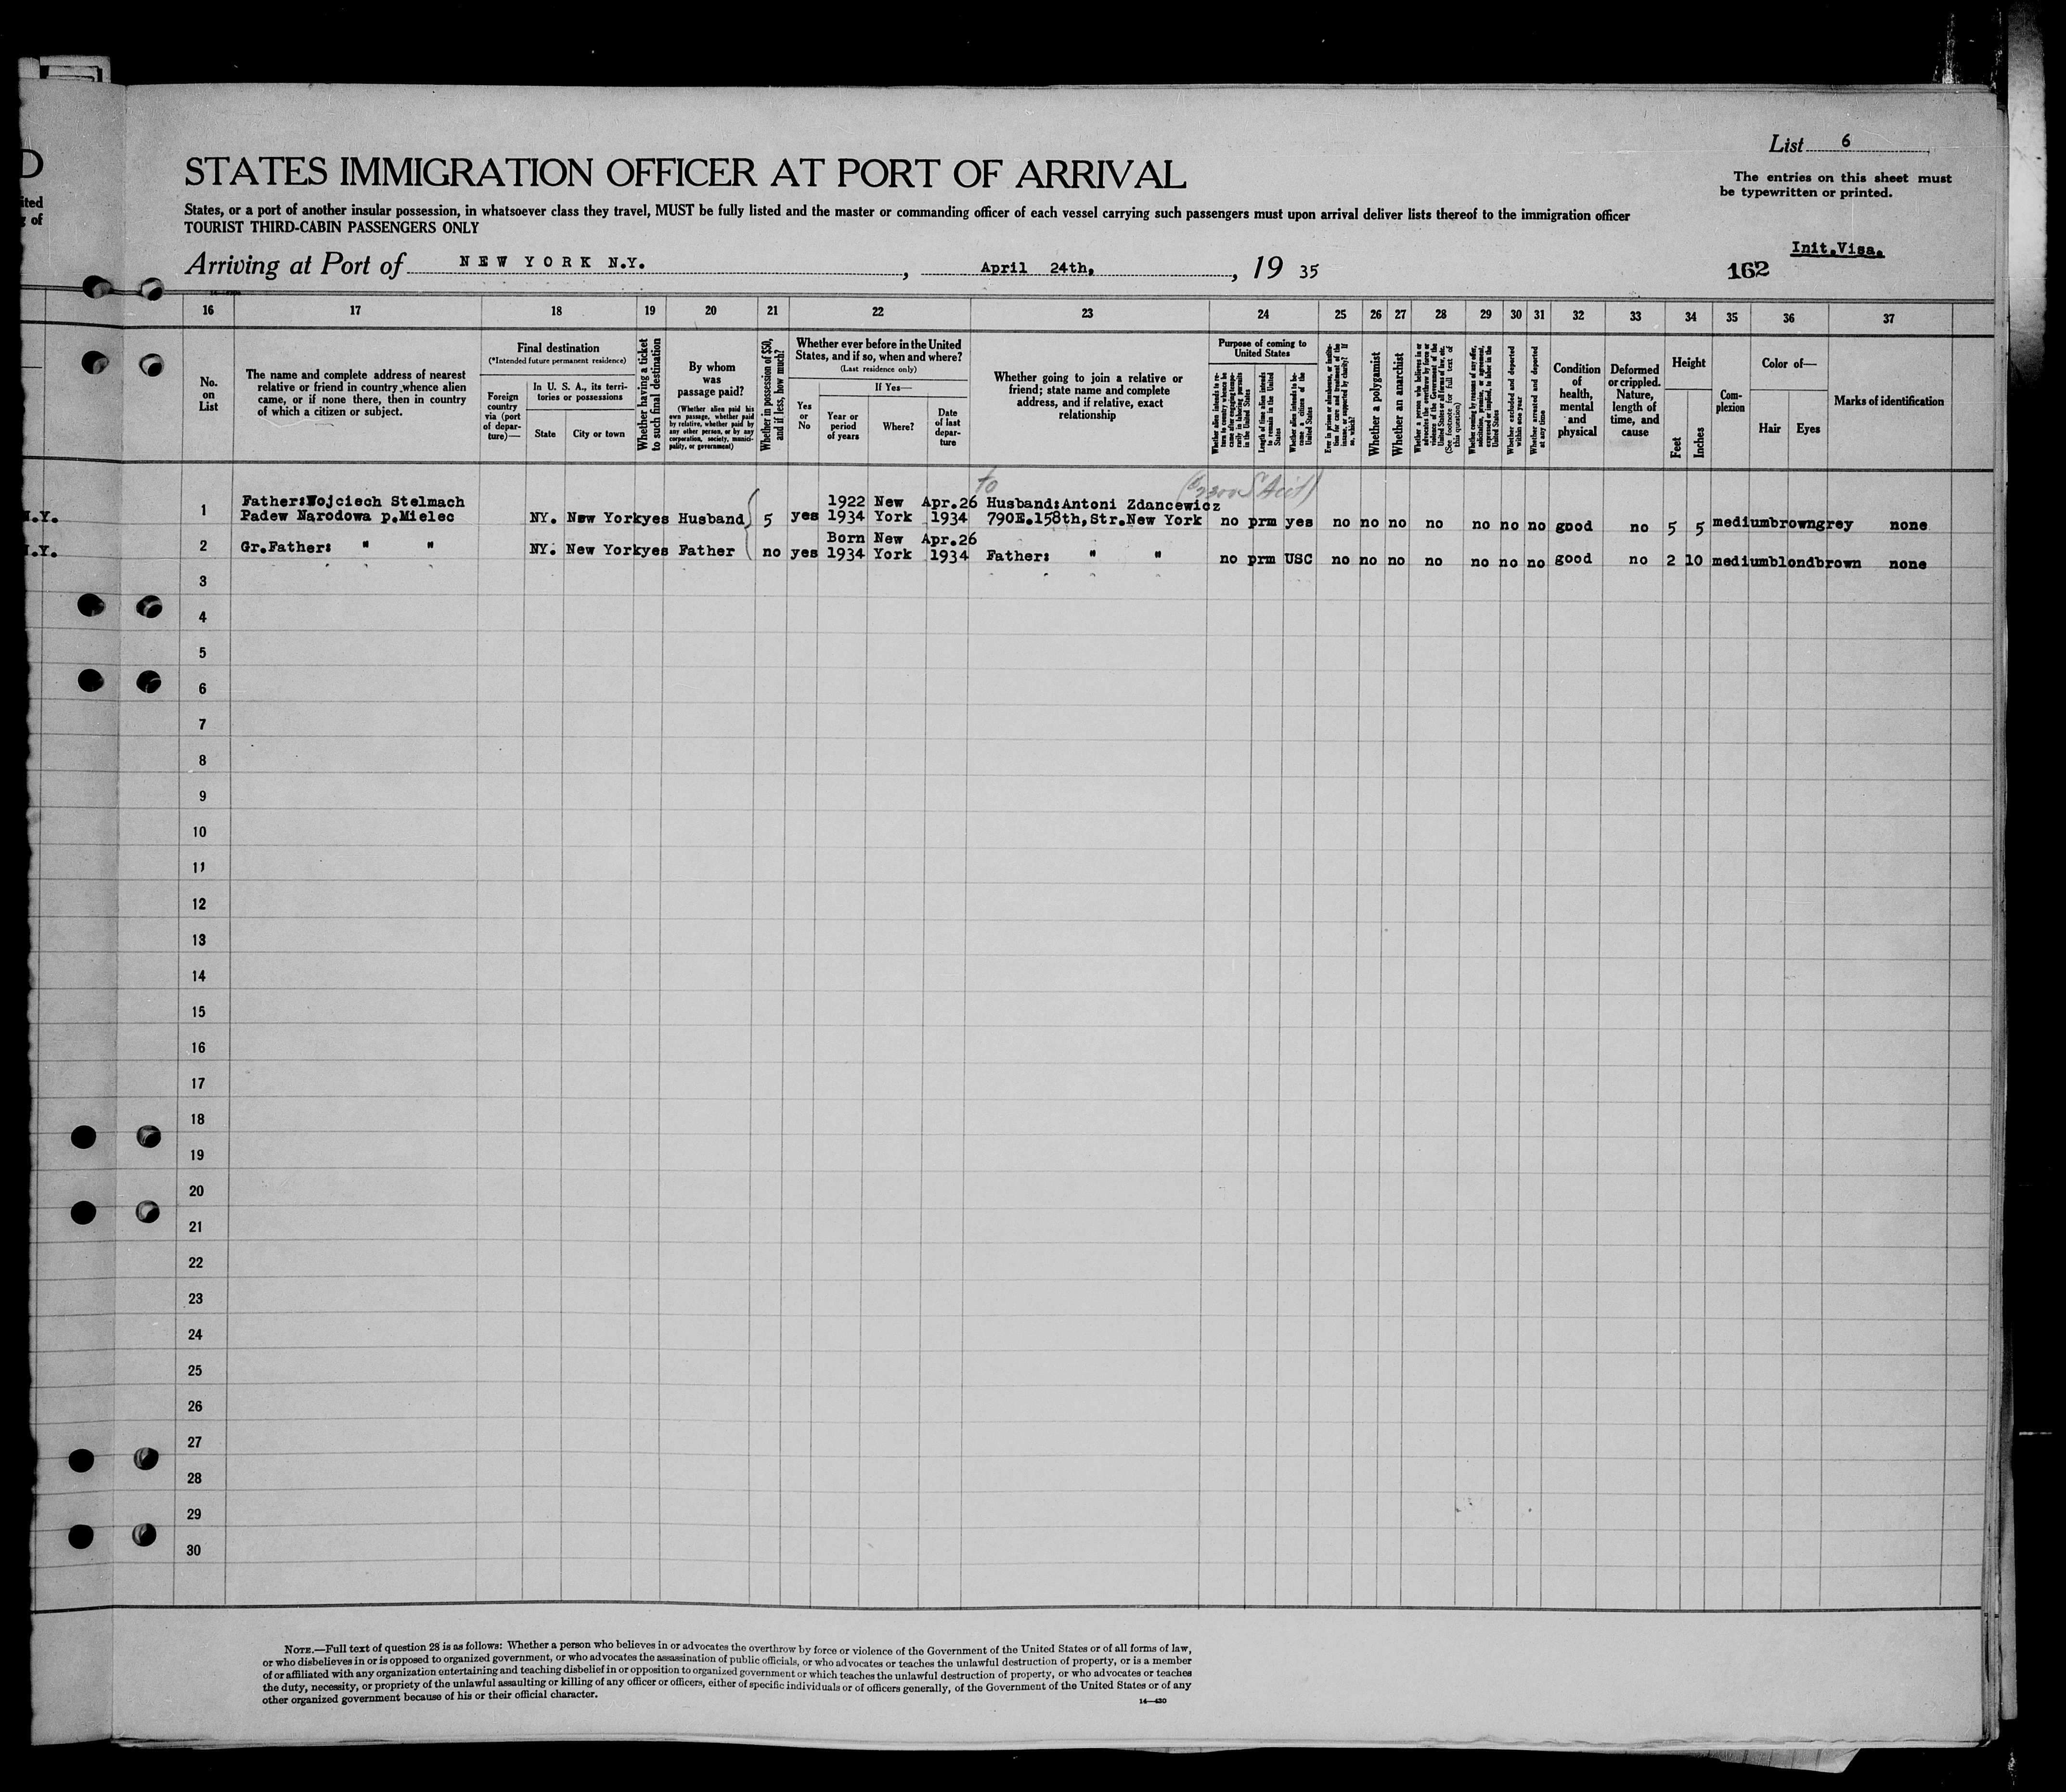 D
ited
g of
List 6
STATES IMMIGRATION OFFICER AT PORT OF ARRIVAL
The entries on this sheet must
be typewritten or printed.
States, or a port of another insular possession, in whatsoever class they travel, MUST be fully listed and the master or commanding officer of each vessel carrying such passengers must upon arrival deliver lists thereof to the immigration officer
TOURIST THIRD-CABIN PASSENGERS ONLY
Init.Visa.
Arriving at Port of NEW YORK N.Y. , April 24th, , 19 35
162
16 17 18 19 20 21 22 23 24 25 26 27 28 29 30 31 32 33 34 35 36 37
No.
on
List
The name and complete address of nearest
relative or friend in country whence alien
came, or if none there, then in country
of which a citizen or subject.
Final destination
(*Intended future permanent residence)
Foreign
country
via (port
of depar-
ture)—
In U. S. A., its terri-
tories or possessions
State
City or town
Whether having a ticket
to such final destination
By whom
was
passage paid?
(Whether alien paid his
own passage, whether paid
by relative, whether paid by
any other person, or by any
corporation, society, munici-
pality, or government)
Whether in possession of $50,
and if less, how much?
Whether ever before in the United
States, and if so, when and where?
(Last residence only)
Yes
or
No
If Yes—
Year or
period
of years
Where?
Date
of last
depar-
ture
Whether going to join a relative or
friend; state name and complete
address, and if relative, exact
relationship
Purpose of coming to
United States
Whether alien intends to re-
turn to country whence he
came after engaging tempo-
rarily in laboring pursuits
in the United States
Length of time alien intends
to remain in the United
States
Whether alien intends to be-
come a citizen of the
United States
Ever in prison or almshouse, or institu-
tion for care and treatment of the
insane, or supported by charity? If
so, which?
Whether a polygamist
Whether an anarchist
Whether a person who believes in or
advocates the overthrow by force or
violence of the Government of the
United States or all forms of law, etc.
(See footnote for full text of
this question)
Whether coming by reason of any offer,
solicitation, promise, or agreement,
expressed or implied, to labor in the
United States
Whether excluded and deported
within one year
Whether arrested and deported
at any time
Condition
of
health,
mental
and
physical
Deformed
or crippled.
Nature,
length of
time, and
cause
Height
Feet
Inches
Com-
plexion
Color of—
Hair
Eyes
Marks of identification
to
Father:Wojciech Stelmach 1922 New Apr.26 Husband:Antoni Zdancewicz
N.Y. 1 Padew Narodowa p.Mielec NY. New York yes Husband 5 yes 1934 York 1934 790E.158th,Str.New York no prm yes no no no no no no no good no 5 5 medium brown grey none
Born New Apr.26
N.Y. 2 Gr.Father: " " NY. New York yes Father no yes 1934 York 1934 Father: " " no prm USC no no no no no no no good no 2 10 medium blond brown none
3
4
5
6
7
8
9
10
11
12
13
14
15
16
17
18
19
20
21
22
23
24
25
26
27
28
29
30
NOTE.—Full text of question 28 is as follows: Whether a person who believes in or advocates the overthrow by force or violence of the Government of the United States or of all forms of law,
or who disbelieves in or is opposed to organized government, or who advocates the assassination of public officials, or who advocates or teaches the unlawful destruction of property, or is a member
of or affiliated with any organization entertaining and teaching disbelief in or opposition to organized government or which teaches the unlawful destruction of property, or who advocates or teaches
the duty, necessity, or propriety of the unlawful assaulting or killing of any officer or officers, either of specific individuals or of officers generally, of the Government of the United States or of any
other organized government because of his or their official character.
14—430